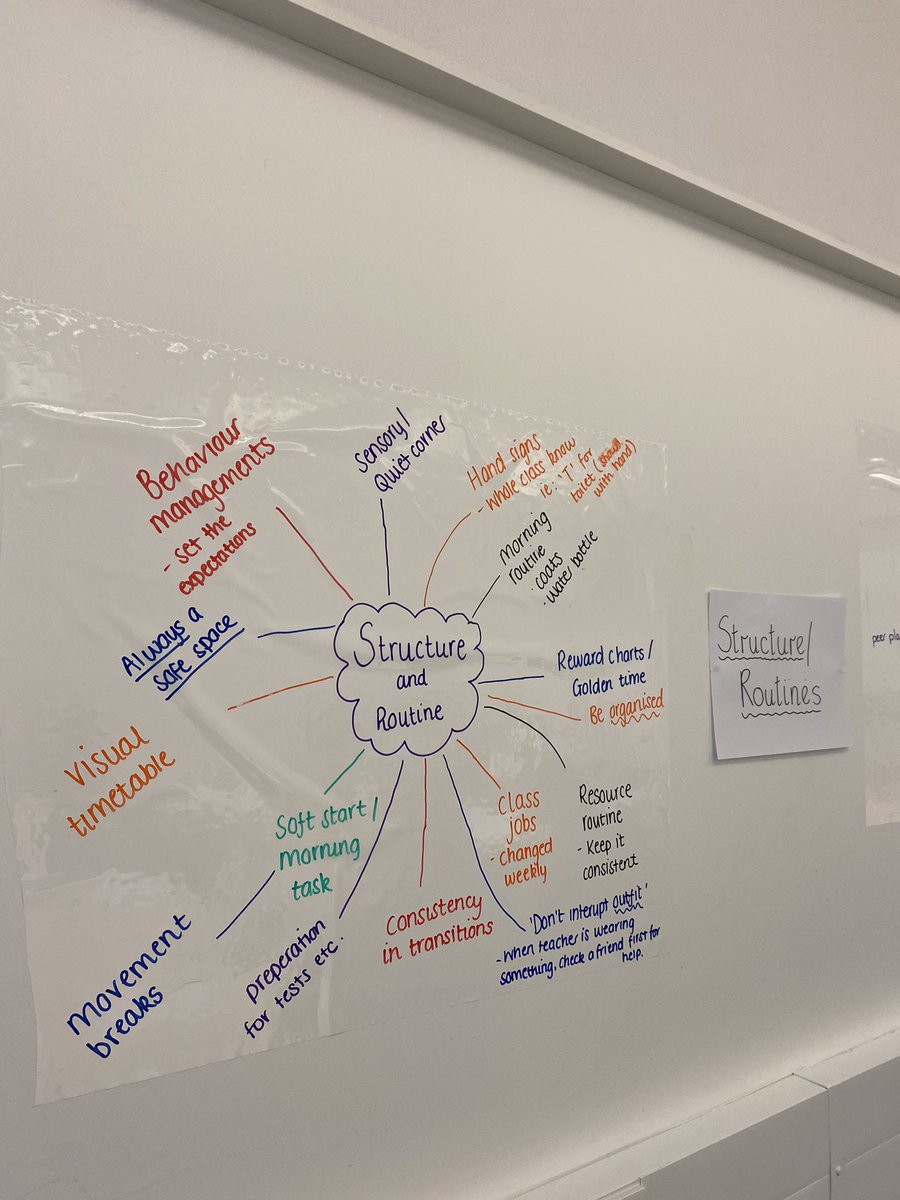 Structure
and
Routine
Behaviour
managements
- set the
expectations
Sensory/
Quiet corner
Hand signs
- whole class know
ie: 'T' for
toilet (
with hand)
Morning
routine
· coats
· water bottle
Reward charts/
Golden time
Be organised
Resource
routine
- Keep it
consistent
Class
jobs
- changed
weekly
'Don't interupt outfit'
- When teacher is wearing
something, check a friend first for
help.
Consistency
in transitions
preperation
for tests etc.
Soft start/
morning
task
movement
breaks
visual
timetable
Always a
safe space
Structure/
Routines
peer